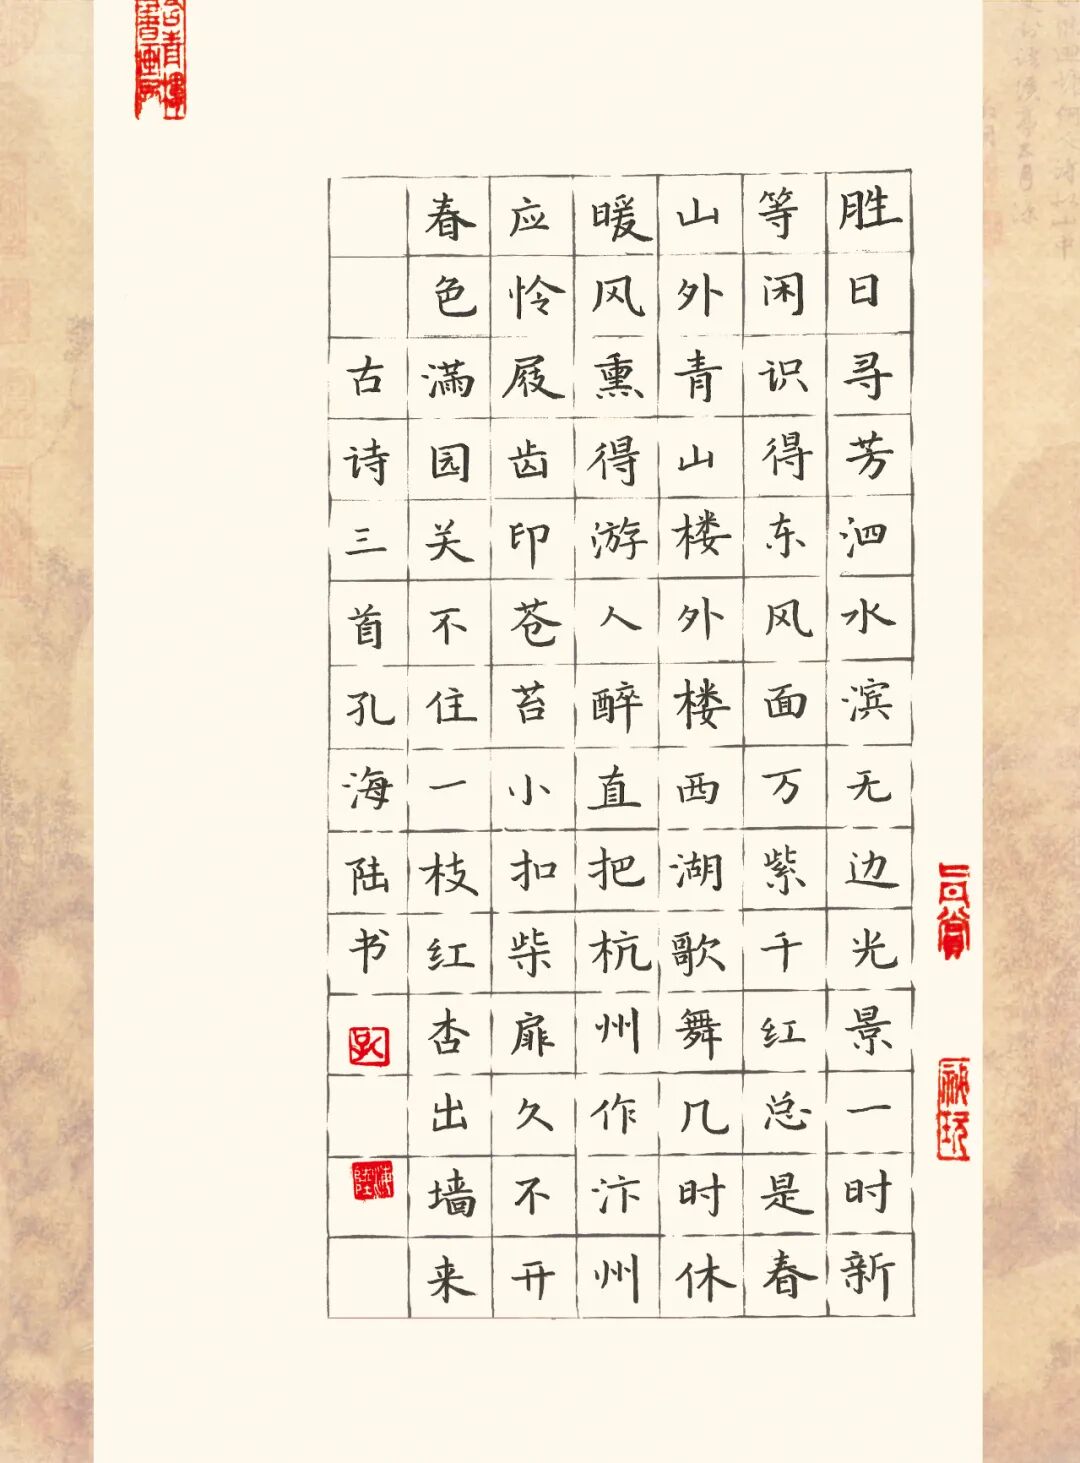 胜日寻芳泗水滨无边光景一时新
等闲识得东风面万紫千红总是春
山外青山楼外楼西湖歌舞几时休
暖风熏得游人醉直把杭州作汴州
应怜屐齿印苍苔小扣柴扉久不开
春色满园关不住一枝红杏出墙来
古诗三首孔海陆书